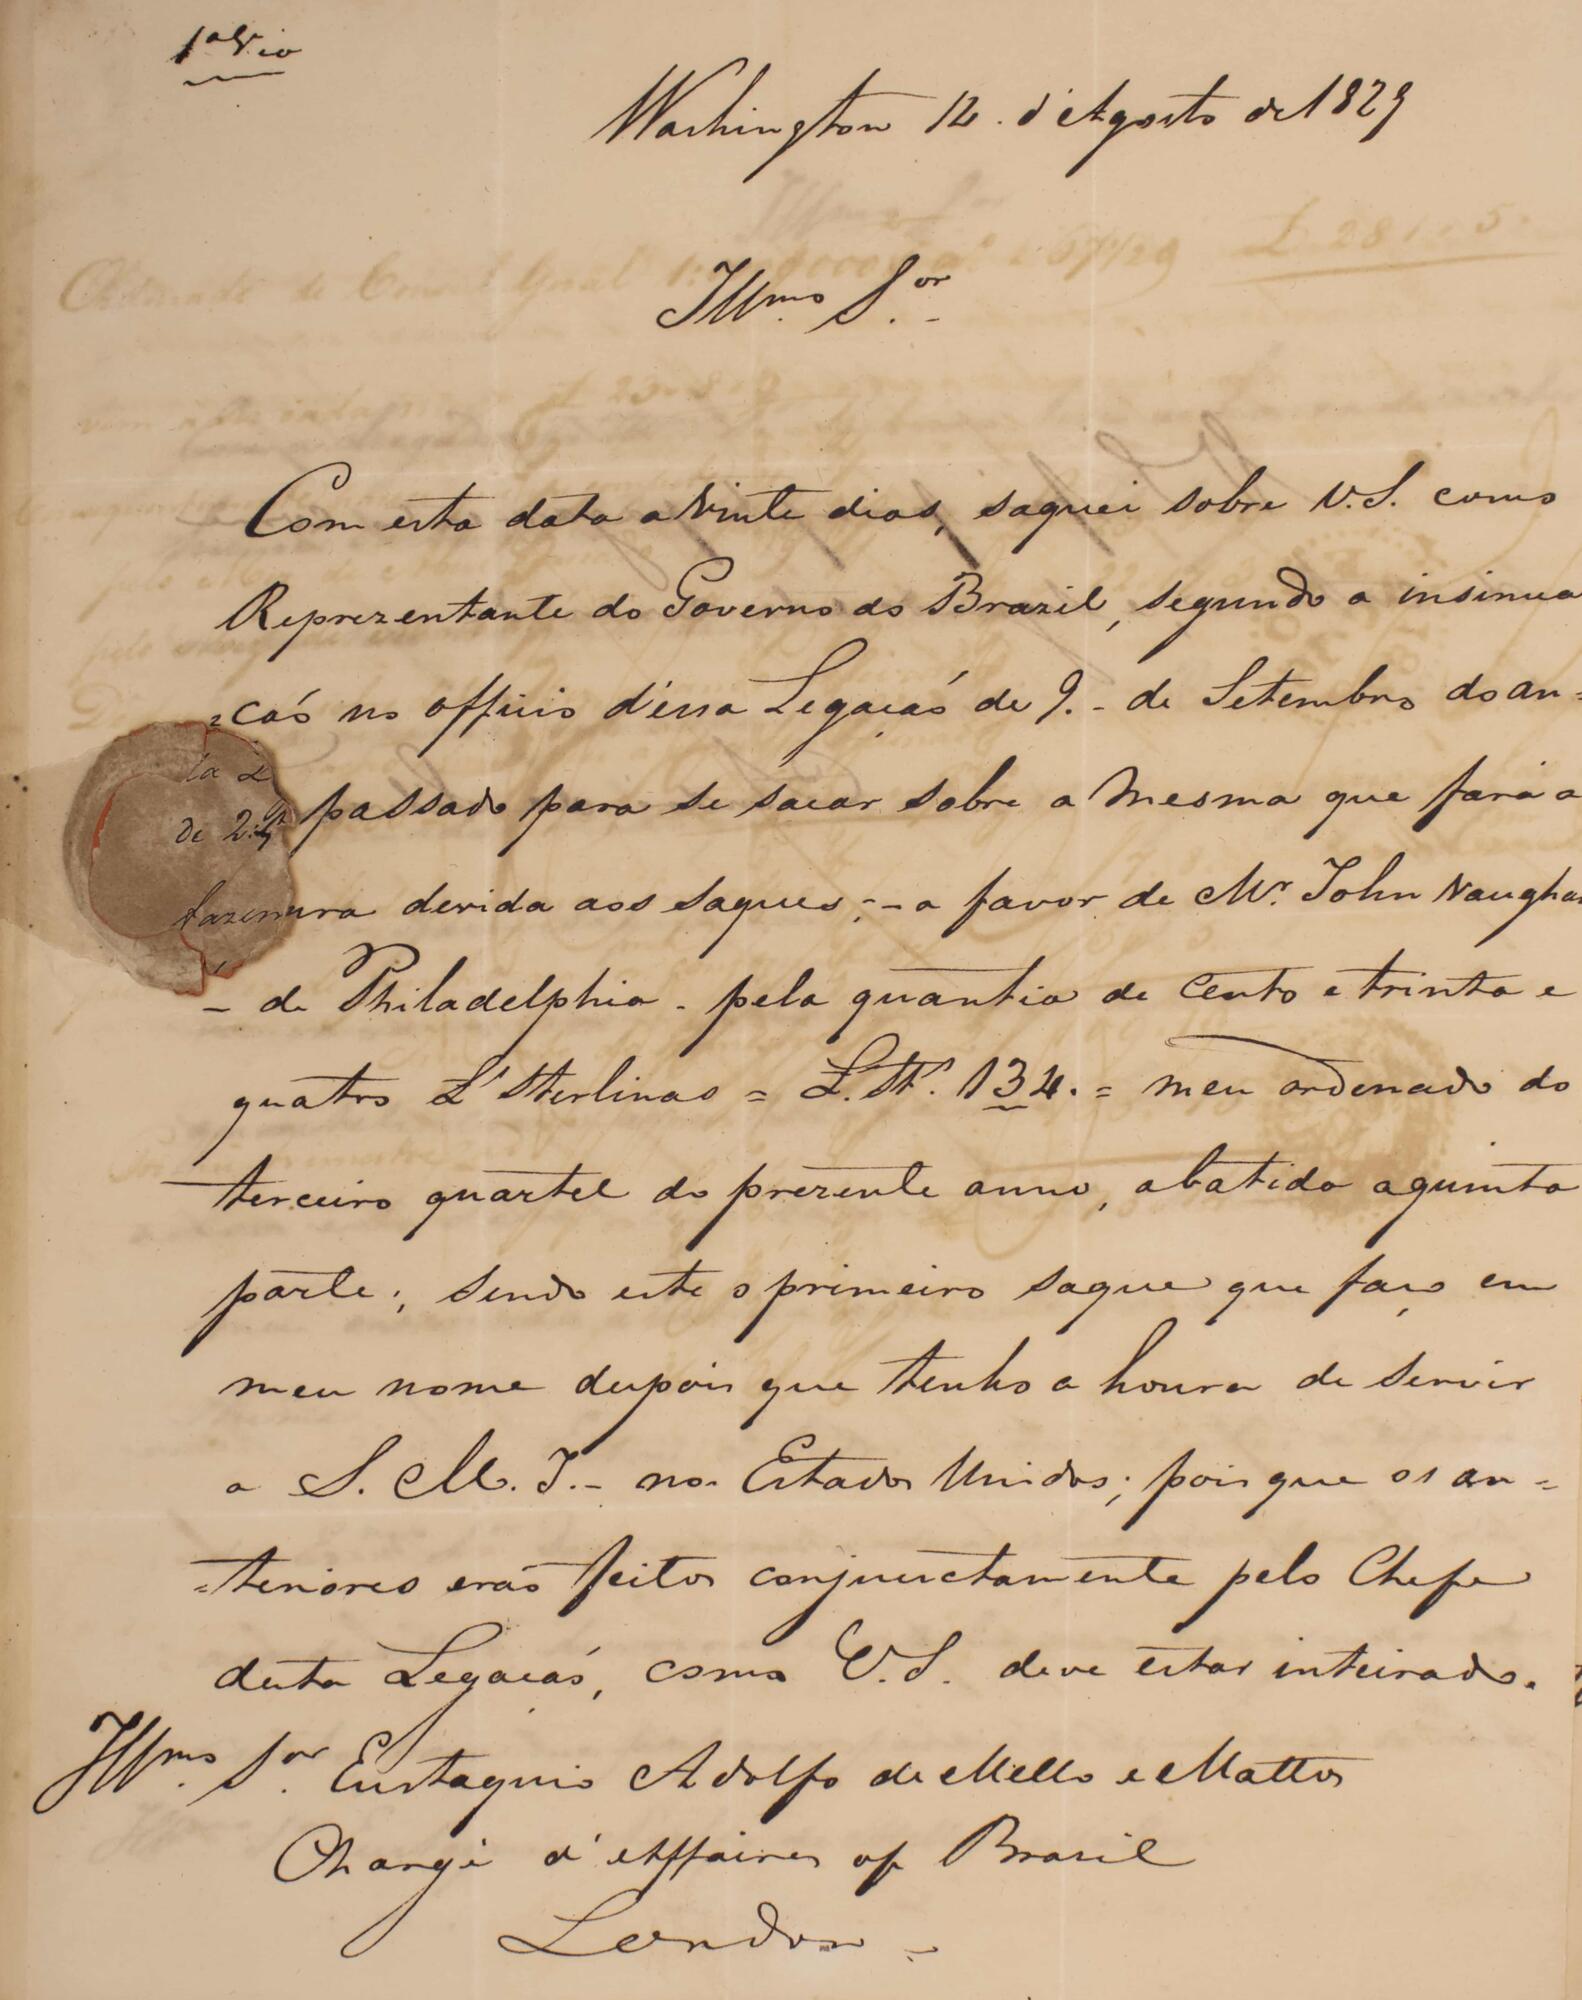 1ª Via
Washington 12. d'Agosto de 1829
Illmo. Sor.
Com esta data a Vinte dias, saquei sobre V.S. como
Reprezentante do Governo do Brazil, segundo a insinua
=caõ no officio d'essa Legaçaõ de 9. - de Setembro do an=
passado para se sacar sobre a mesma que fará a
devida aos saques; - a favor de Mr. John Vaughan
- de Philadelphia - pela quantia de cento e trinta e
quatro £s Sterlinas = £. St.s 134. = meu ordenado do
terceiro quartel do prezente anno, abatido a quinta
parte; sendo este o primeiro saque que faço em
meu nome depois que tenho a honra de servir
a S. M. I. - nos Estados Unidos; pois que os an=
=teriores eraõ feitos conjunctamente pelo Chefe
desta Legaçaõ, como V.S. deve estar inteirado.
Illmo. Sor. Eustaquio Adolfo de Mello e Mattos
Chargé d'Affaires of Brazil
London -